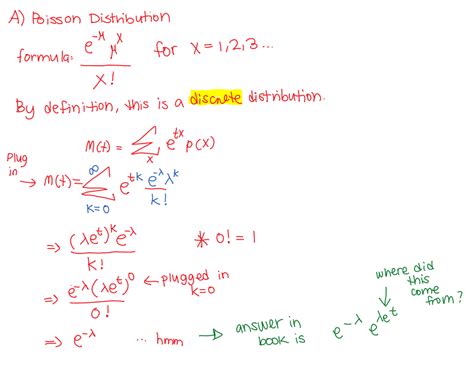 A) Poisson Distribution
formula: e^{-μ} μ^x / x! for x = 1,2,3...
By definition, this is a discrete distribution.
M(t) = Σ_x e^{tx} p(x)
Plug in → M(t) = Σ_{k=0}^{∞} e^{tk} e^{-λ} λ^k / k!
⇒ (λe^t)^k e^{-λ} / k! * 0! = 1
⇒ e^{-λ} (λe^t)^0 / 0! ← plugged in k=0
⇒ e^{-λ} ... hmm → answer in book is e^{-λ} e^{λe^t}
where did this come from?